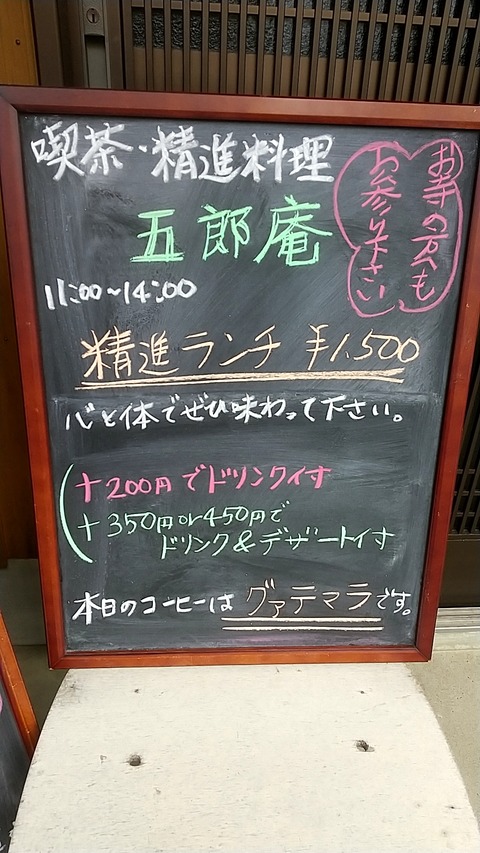 喫茶・精進料理
五郎庵
お寺の方も
お参り下さい
11:00~14:00
精進ランチ ¥1,500
心と体でぜひ味わって下さい。
+200円でドリンク付
+350円or450円で
ドリンク&デザート付
本日のコーヒーは グァテマラです。